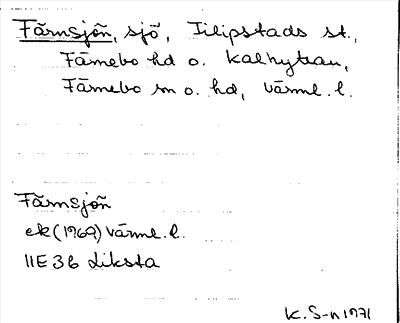 Färnsjön, sjö, Filipstads st.,
Färnebo hd o. Kalhyttan,
Färnebo sn o. hd, Värml. l.
Färnsjön
ek (1969) Värml. l.
11E3b Liksta
K. S-n 1971